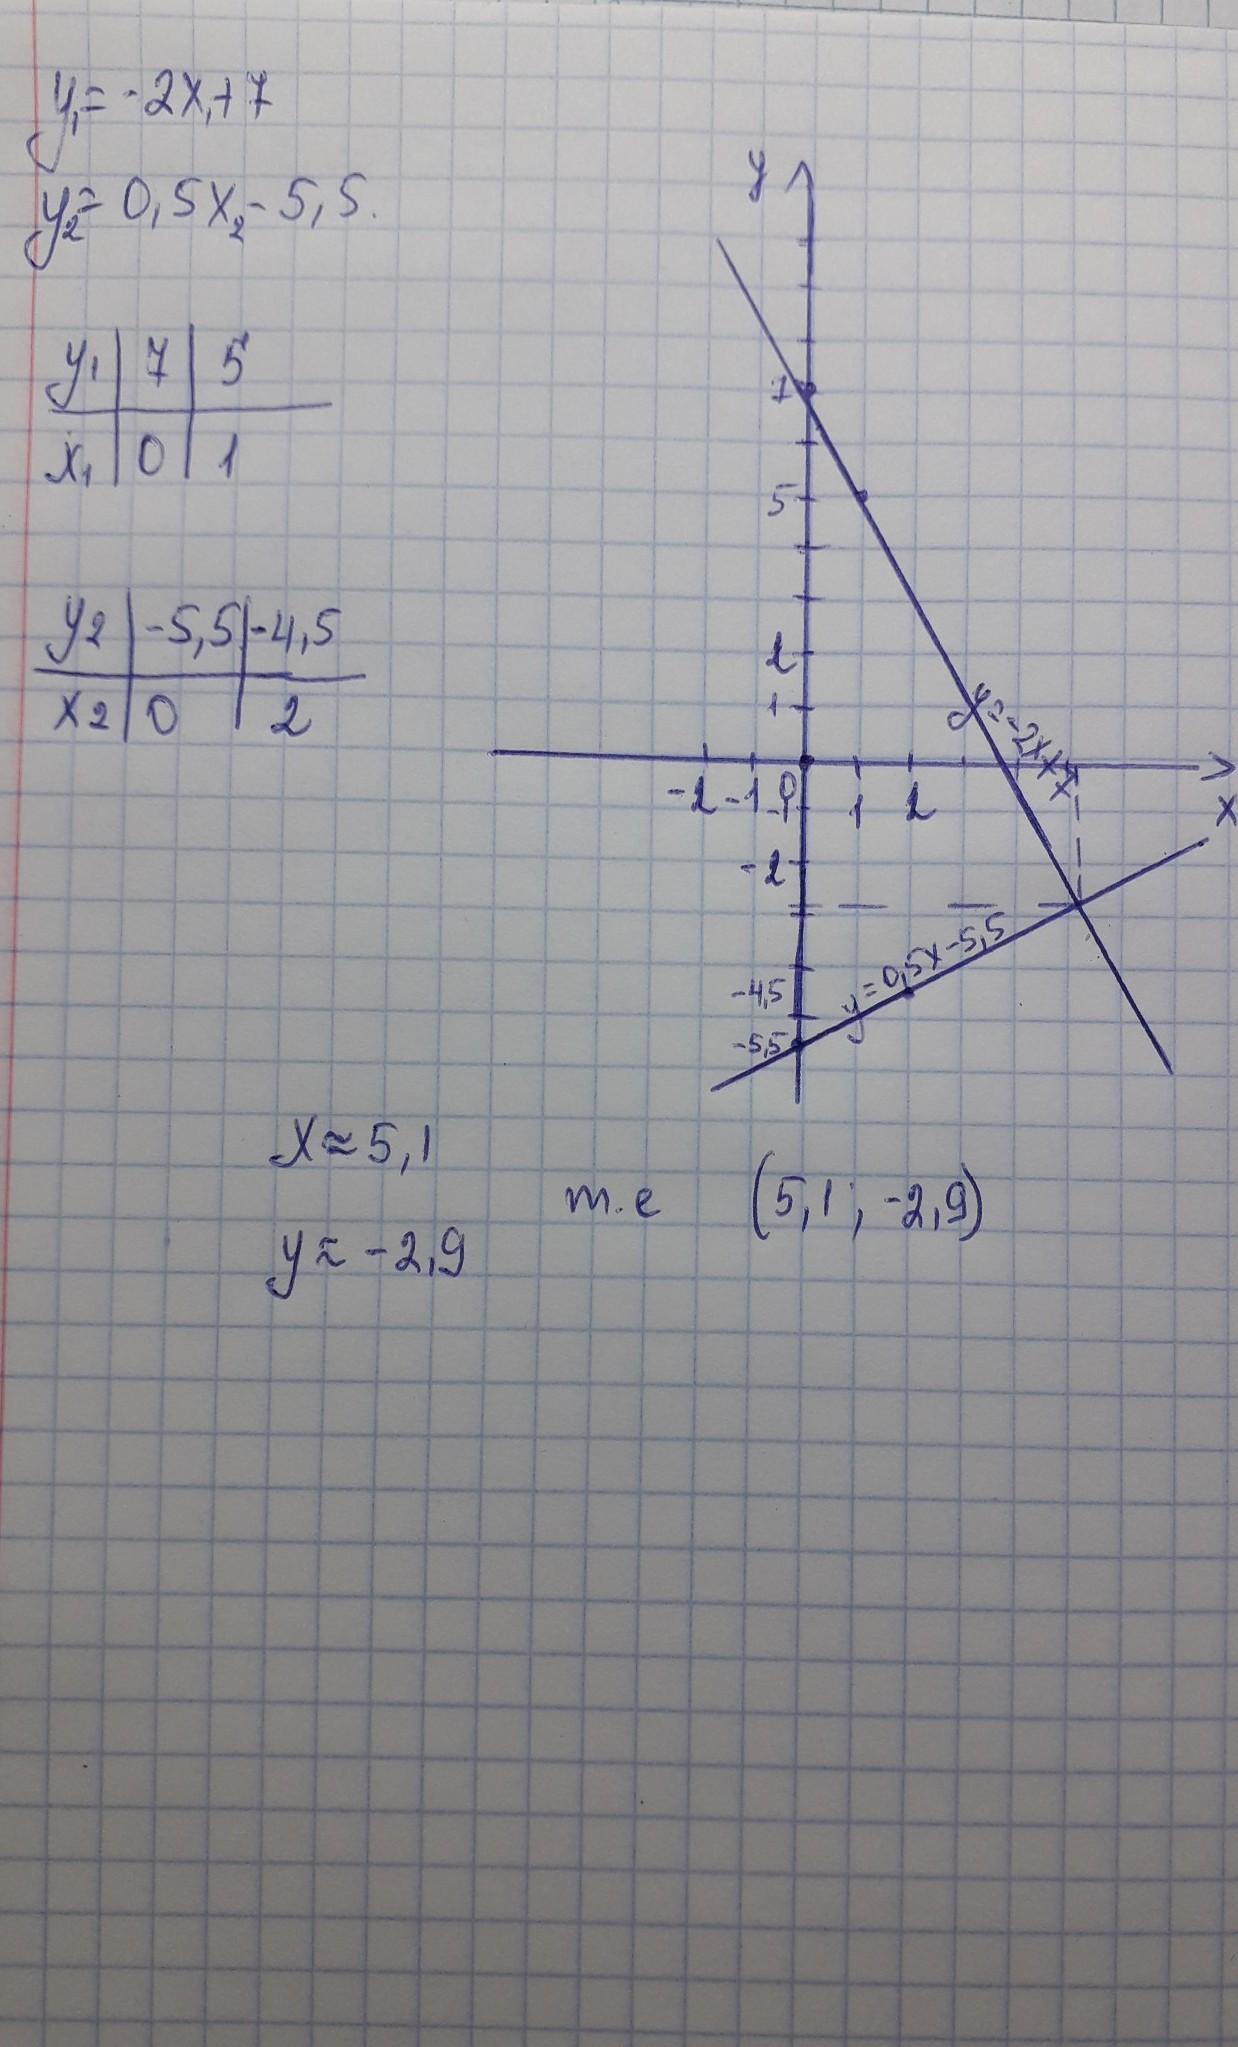 y₁ = -2x₁+7
y₂ = 0,5x₂ - 5,5.
y₁ | 7 | 5
x₁ | 0 | 1
y₂ | -5,5 | -4,5
x₂ | 0 | 2
y
7
5
2
1
-2 -1 0 1 2
x
-1
-2
-4,5
-5,5
y=-2x+7
y=0,5x-5,5
x≈5,1
y≈ -2,9
т.е (5,1; -2,9)